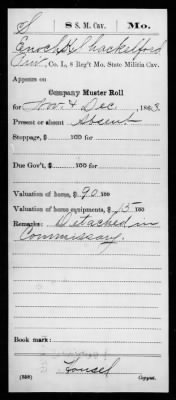 S | 8 S. M. Cav. | Mo.
Enoch K. Shackelford
Pvt., Co. L, 8 Reg't Mo. State Militia Cav.
Appears on
Company Muster Roll
for Nov. & Dec., 1863.
Present or absent Absent
Stoppage, $ 100 for
Due Gov't, $ 100 for
Valuation of horse, $ 90 100
Valuation of horse equipments, $ 15 100
Remarks: Detached in
Commissary.
Book mark:
(858) Copyist.